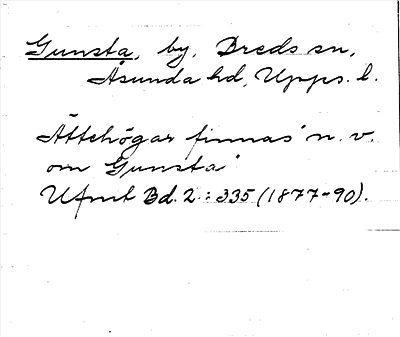 Gunsta, by, Breds sn,
Åsunda hd, Upps. l.
Ättehögar finnas "n. v.
om Gunsta"
Ufmt Bd. 2 : 335 (1877-90).